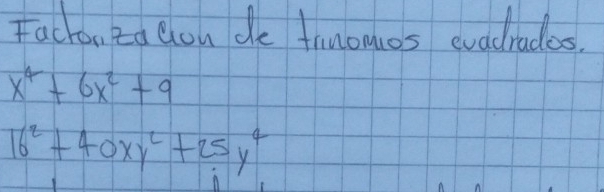 Factorización de trinomios cuadrados.
x⁴ + 6x² + 9
16² + 40xy² + 25y⁴